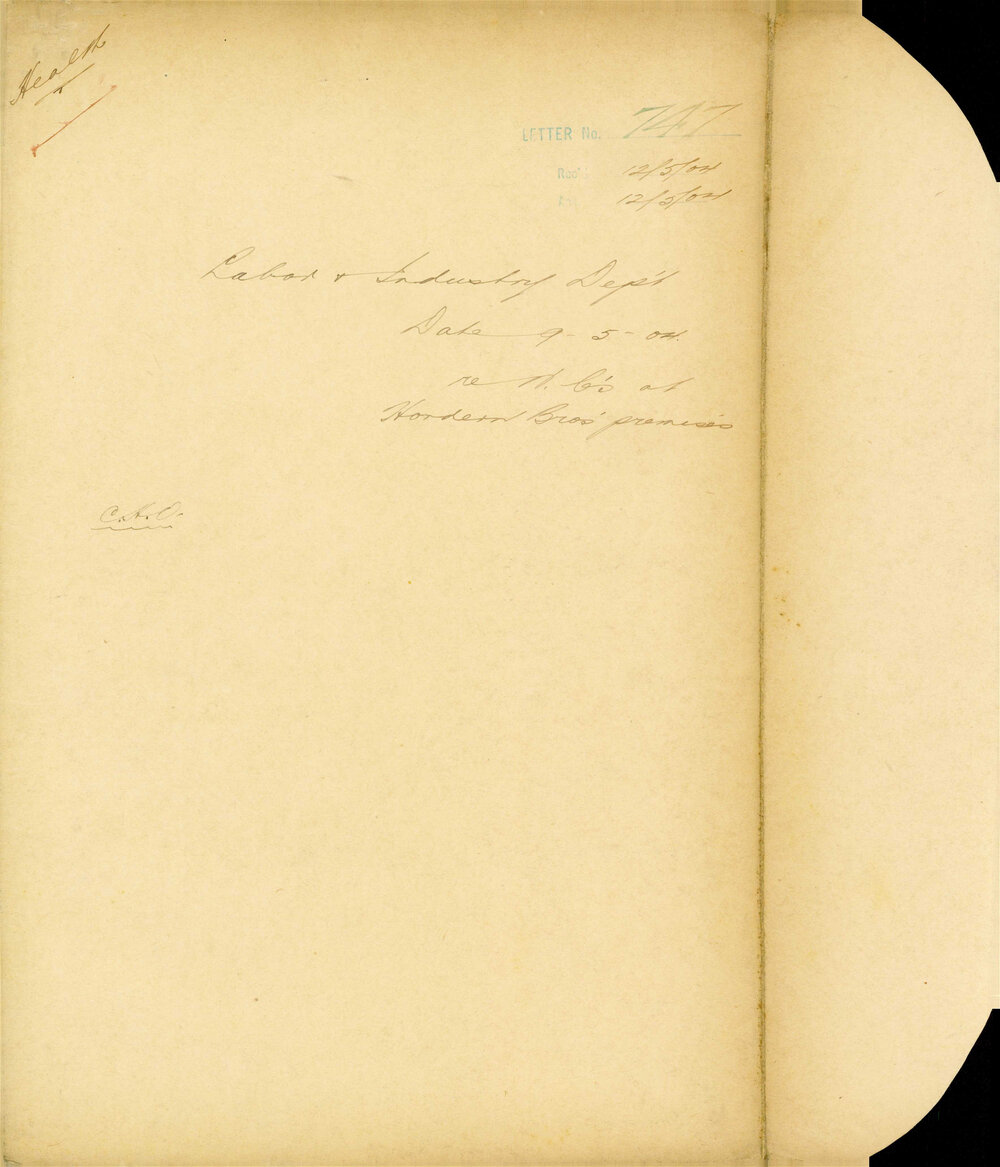 Health
LETTER No. 747
Rec'd 12/5/04
Ans 12/5/04
Labor & Industry Dep't
Date 9-5-04.
re W.C's at
Hordern Bros' premises
C.H.O.